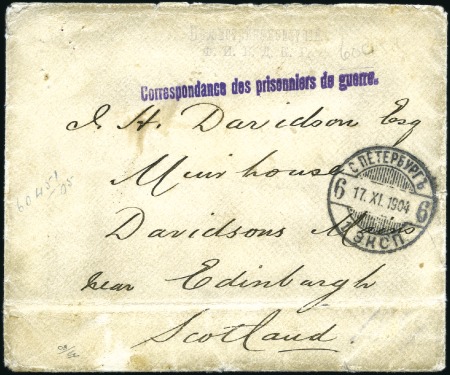 Correspondance des prisonniers de guerre.
J. H. Davidson Esq
Muirhouse
Davidsons Mains
near Edinburgh
Scotland
С ПЕТЕРБУРГЪ
6 17. XI. 1904 6
1 ЭКСП.